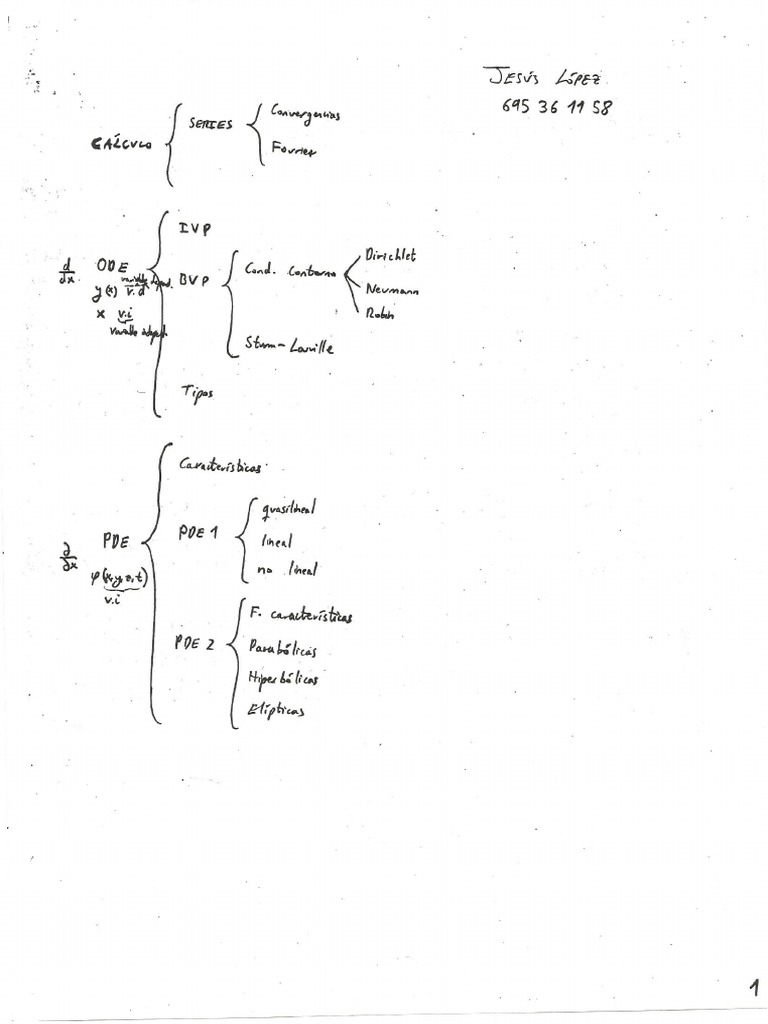 JESÚS LÓPEZ
695 36 11 58
CÁLCULO
SERIES
Convergencias
Fourier
d/dx
ODE
y(x) v.d
variable depend.
x v.i
variable indepd.
IVP
BVP
Cond. Contorno
Dirichlet
Neumann
Robin
Sturm-Liouville
Tipos
∂/∂x
PDE
φ(x,y,z,t)
v.i
Características
PDE 1
quasilineal
lineal
no lineal
PDE 2
F. características
Parabólicas
Hiperbólicas
Elípticas
1